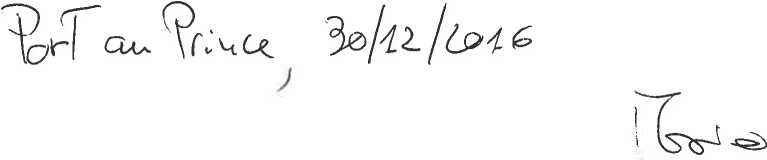 Port au Prince, 30/12/2016